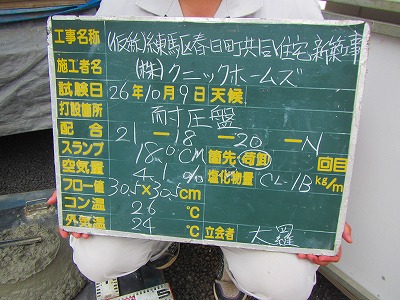 工事名称 (仮称)練馬区春日町共同住宅新築工事
施工者名 (株)クニックホームズ
試験日 26年10月9日 天候
打設箇所 耐圧盤
配合 21-18-20-N
スランプ 18.0cm 筒先 荷卸 回目
空気量 4.1% 塩化物量 CL-1B kg/m
フロー値 30.5×30.5cm
コン温 26℃
外気温 24℃ 立会者 大羅